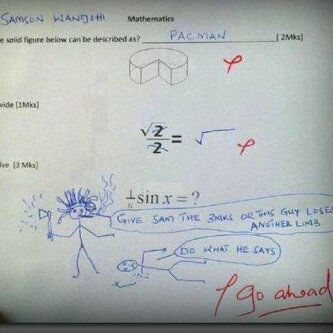 SAMSON WANJOHI Mathematics
e solid figure below can be described as? PACMAN [2Mks]
vide [1Mks]
√2/2 = √
lve [3 Mks]
1/n sin x = ?
GIVE SAM THE 3MKS OR THIS GUY LOSES
ANOTHER LIMB
DO WHAT HE SAYS
go ahead